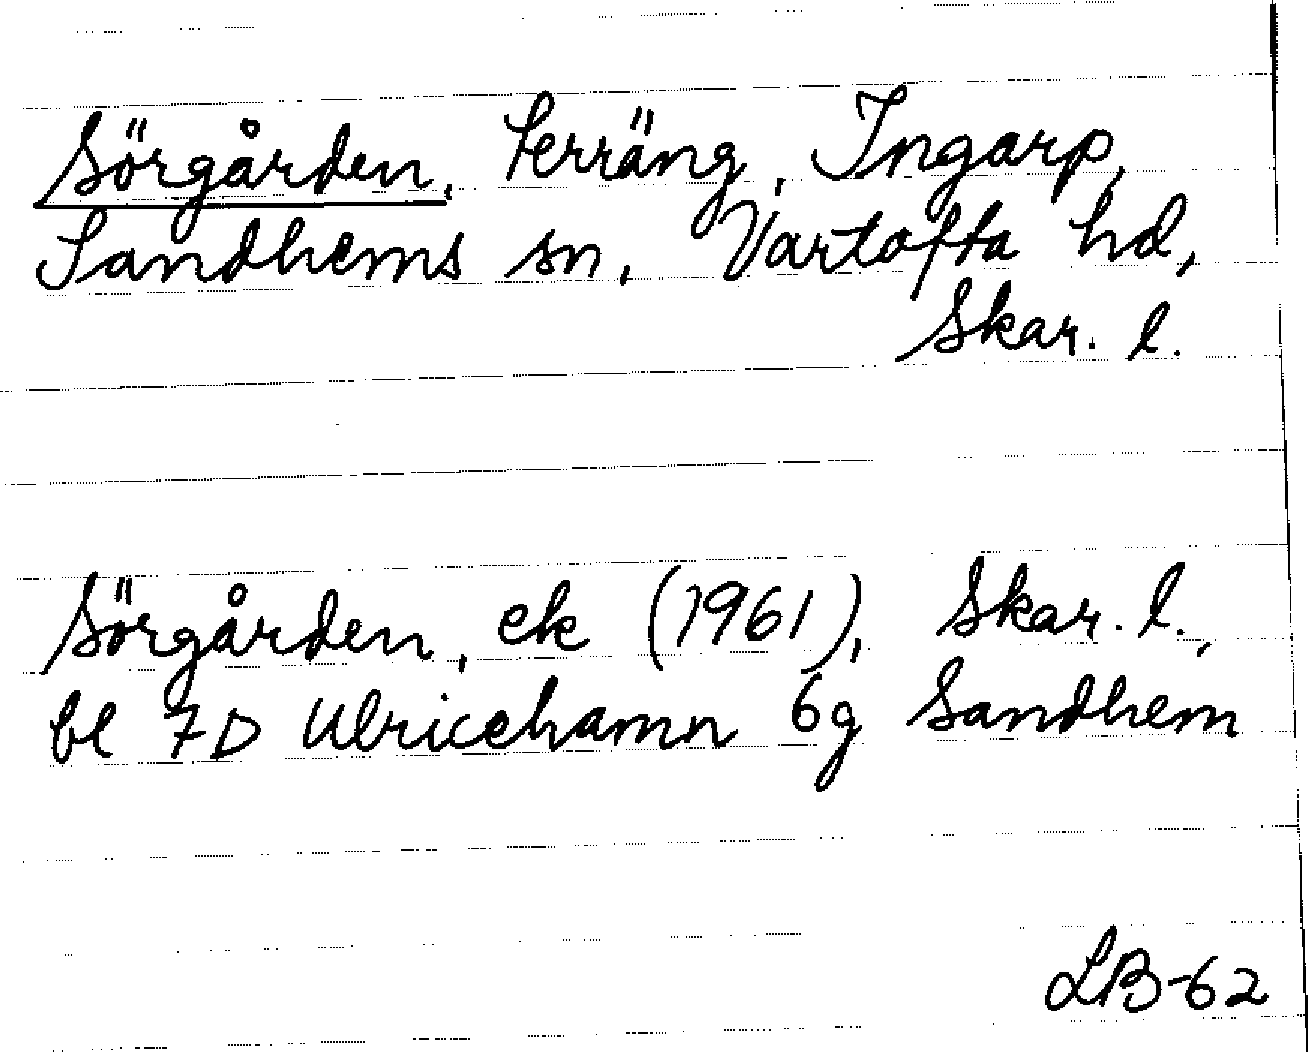 Sörgården, terräng, Ingarp,
Sandhems sn, Vartofta hd,
Skar. l.
Sörgården, ek (1961), Skar. l.,
bl 7D Ulricehamn 6g Sandhem
LB-62